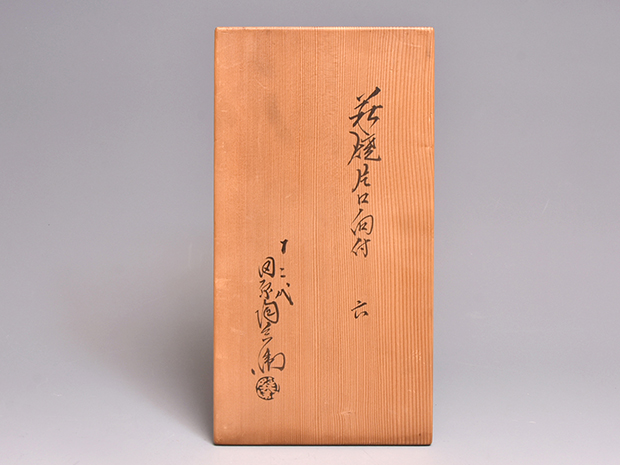 萩焼片口向付　六
十二代
田原陶兵衛